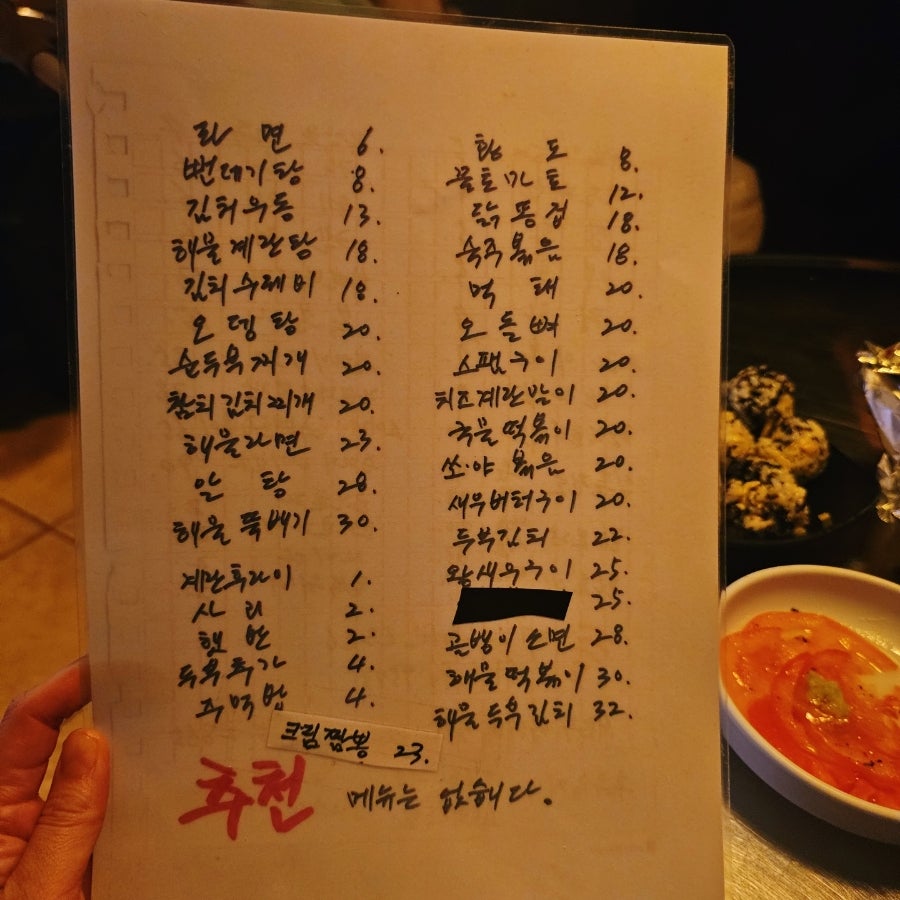 라면 6.
뻔데기탕 8.
김치우동 13.
해물계란탕 18.
김치수제비 18.
오뎅탕 20.
순두부찌개 20.
참치김치찌개 20.
해물라면 23.
알탕 28.
해물뚝배기 30.
계란후라이 1.
사리 2.
햇반 2.
두부추가 4.
주먹밥 4.
황도 8.
꿀토마토 12.
닭똥집 18.
숙주볶음 18.
먹태 20.
오돌뼈 20.
스팸구이 20.
치즈계란말이 20.
국물떡볶이 20.
쏘.야 볶음 20.
새우버터구이 20.
두부김치 22.
왕새우구이 25.
25.
골뱅이소면 28.
해물떡볶이 30.
해물두부김치 32.
크림짬뽕 23.
추천 메뉴는 없습니다.